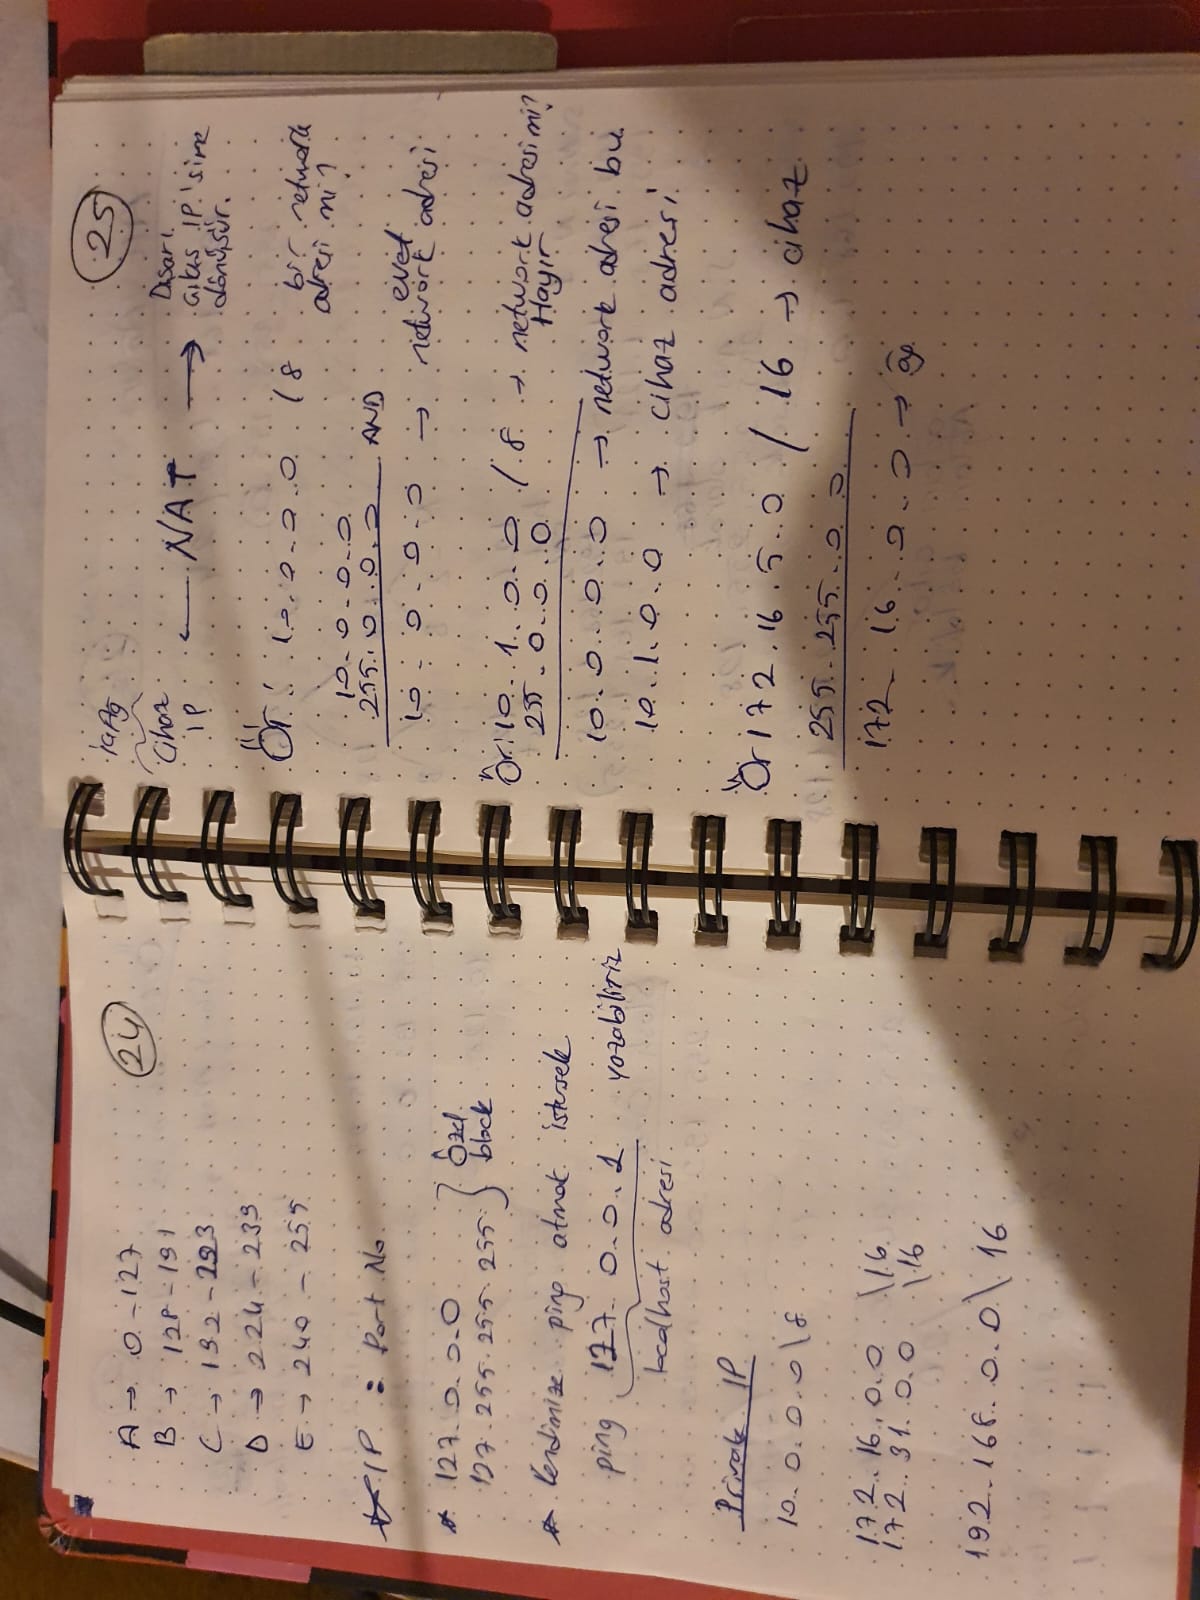 24
A → 0 - 127
B → 128 - 191
C → 192 - 223
D → 224 - 239
E → 240 - 255
* IP : Port No
* 127.0.0.0
127.255.255.255
Özel
block
* Kendimize ping atmak istersek
ping 127.0.0.1 yazabiliriz
localhost adresi
Private IP
10.0.0.0\8
172.16.0.0 \16
172.31.0.0 \16
192.168.0.0\16
25
iç Ağ
Cihaz
IP
← NAT →
Dışarı
çıkış IP'sine
dönüşür.
Ör: 10.0.0.0 /8 bir network
adresi mi?
10.0.0.0
255.0.0.0 AND
10.0.0.0 → evet
network adresi
Ör: 10.1.0.0 /8 → network adresi mi?
255.0.0.0 Hayır
10.0.0.0 → network adresi bu
10.1.0.0 → cihaz adresi
Ör: 172.16.5.0 / 16 → cihaz
255.255.0.0
172.16.0.0 → ağ